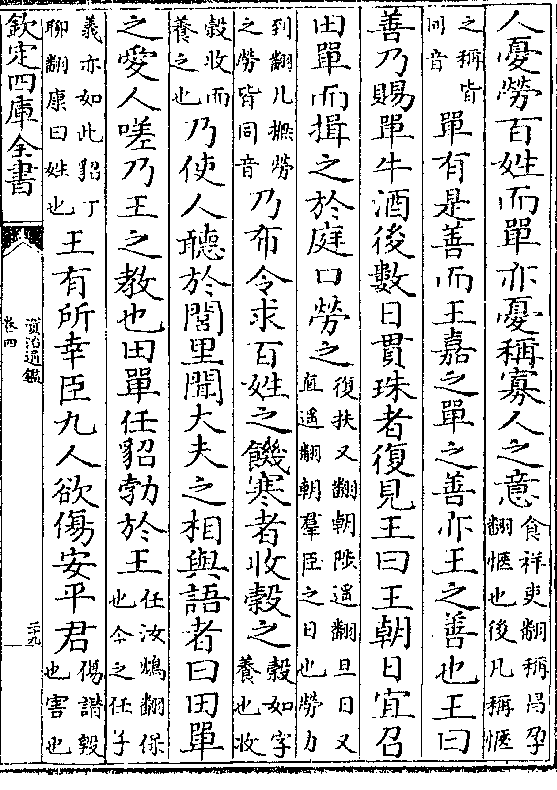 人憂勞百姓而單亦憂稱寡人之意食祥吏翻稱昌孕
翻愜也後凡稱愜
之稱皆
同音單有是善而王嘉之單之善亦王之善也王曰
善乃賜單牛酒後數日貫珠者復見王曰王朝日宜召
田單而揖之於庭口勞之復扶又翻朝陟遥翻旦日又
直遥翻朝羣臣之日也勞力
到翻凡撫勞
之勞皆同音乃布令求百姓之饑寒者收穀之穀如字
養也收
穀收而
養之也乃使人聽於閭里聞大夫之相與語者曰田單
之愛人嗟乃王之教也田單任貂勃於王任汝鴆翻保
也今之任子
義亦如此貂丁
聊翻康曰姓也王有所幸臣九人欲傷安平君傷譖毀
也害也
欽定四庫全書
資治通鑑
卷四
二十九